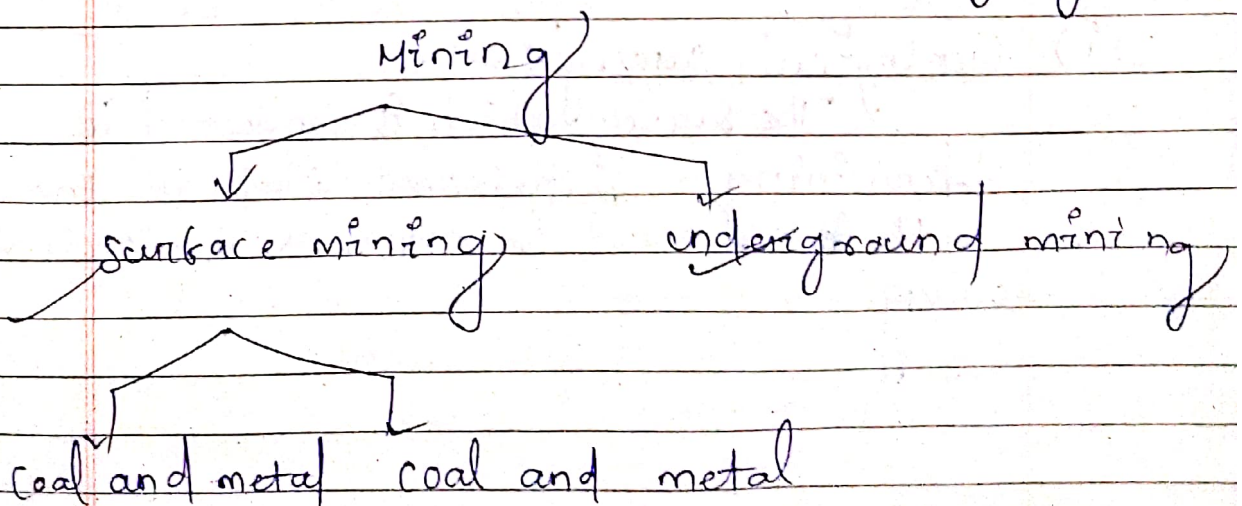 Mining
surface mining underground mining
coal and metal coal and metal